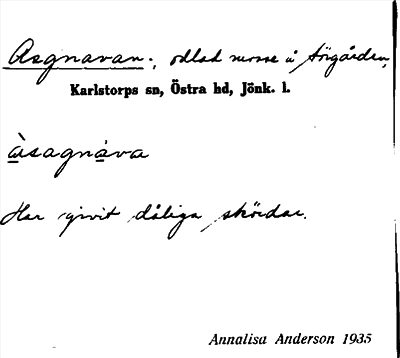 Asgnavan; odlad mosse å Örgården,
Karlstorps sn, Östra hd, Jönk. l.
àsagnava
Har givit dåliga skördar.
Annalisa Anderson 1935